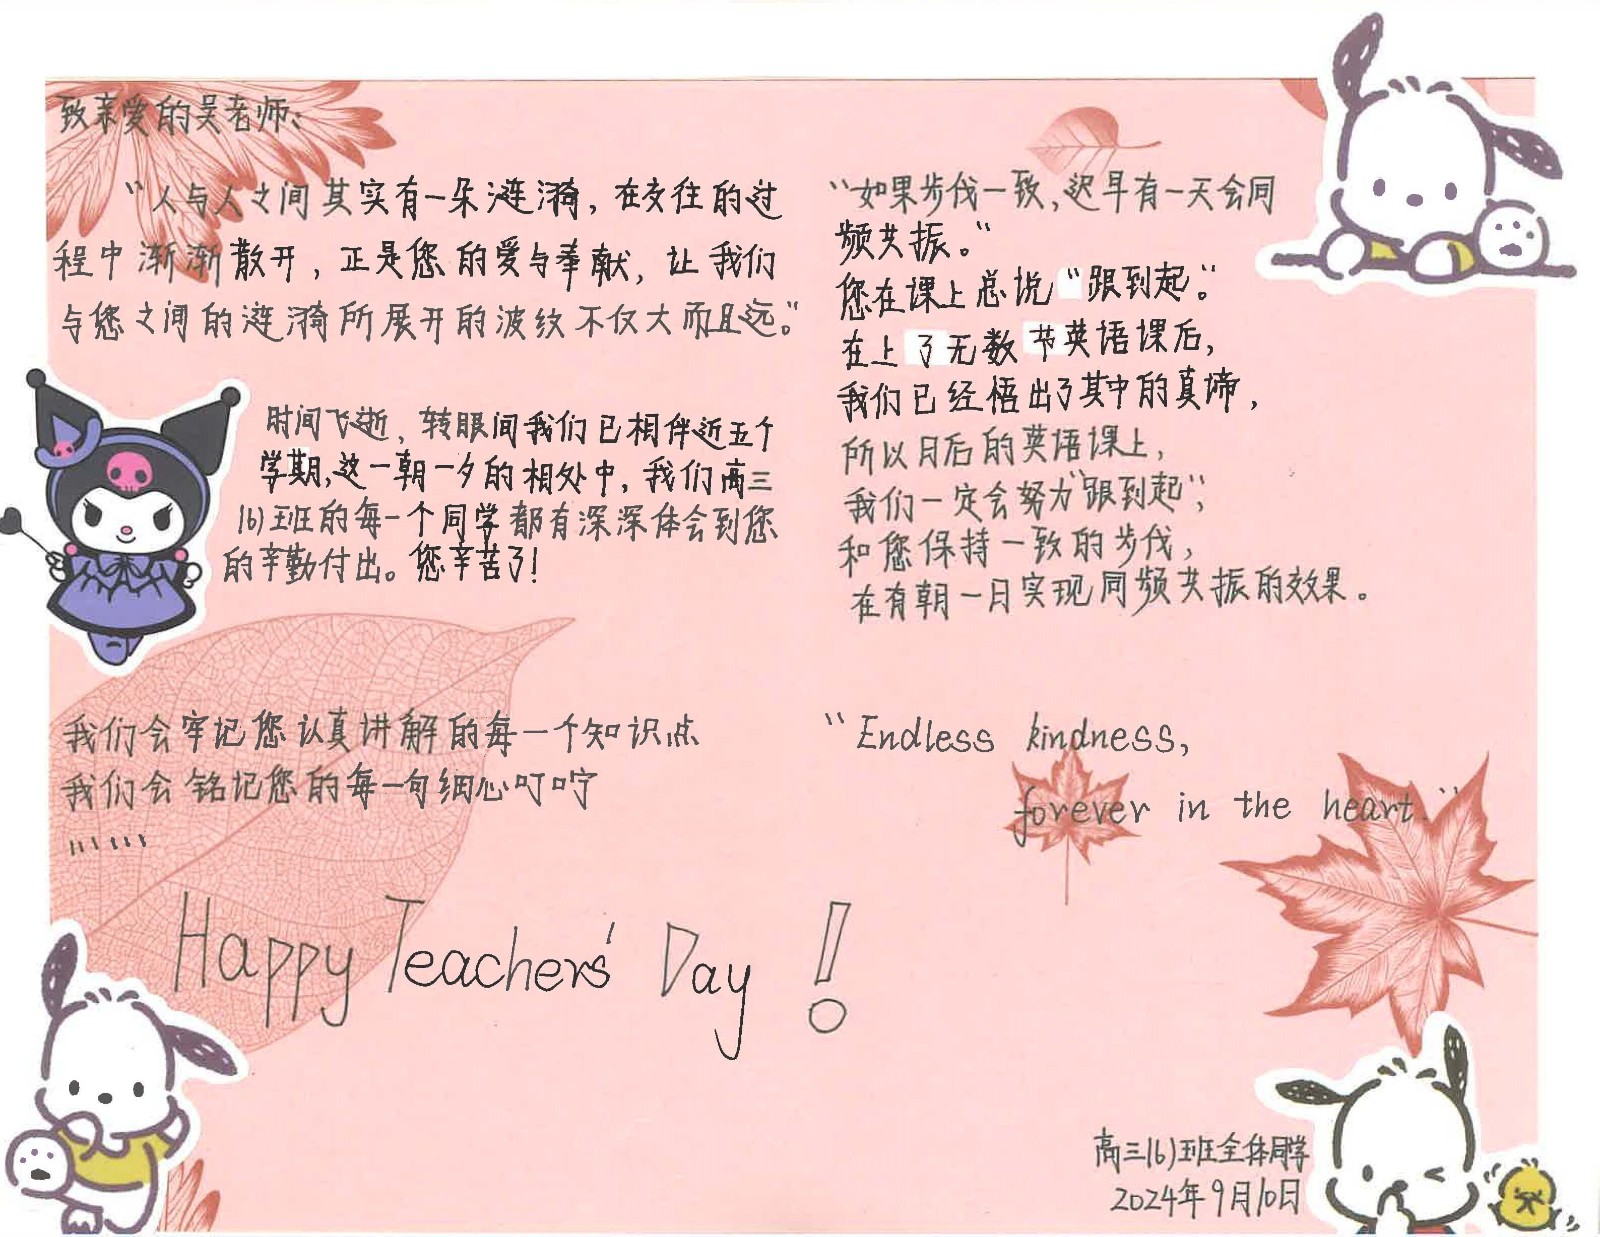 致亲爱的吴老师：
“人与人之间其实有一朵涟漪，在交往的过
程中渐渐散开，正是您的爱与奉献，让我们
与您之间的涟漪所展开的波纹不仅大而且远。”
时间飞逝，转眼间我们已相伴近五个
学期，这一朝一夕的相处中，我们高三
16)班的每一个同学都有深深体会到您
的辛勤付出。您辛苦了！
我们会牢记您认真讲解的每一个知识点
我们会铭记您的每一句细心叮咛
……
“如果步伐一致，迟早有一天会同
频共振。”
您在课上总说“跟到起”。
在上了无数节英语课后，
我们已经悟出了其中的真谛，
所以月后的英语课上，
我们一定会努力“跟到起”，
和您保持一致的步伐，
在有朝一日实现同频共振的效果。
“Endless kindness,
forever in the heart.”
Happy Teachers' Day！
高三16)班全体同学
2024年9月10日